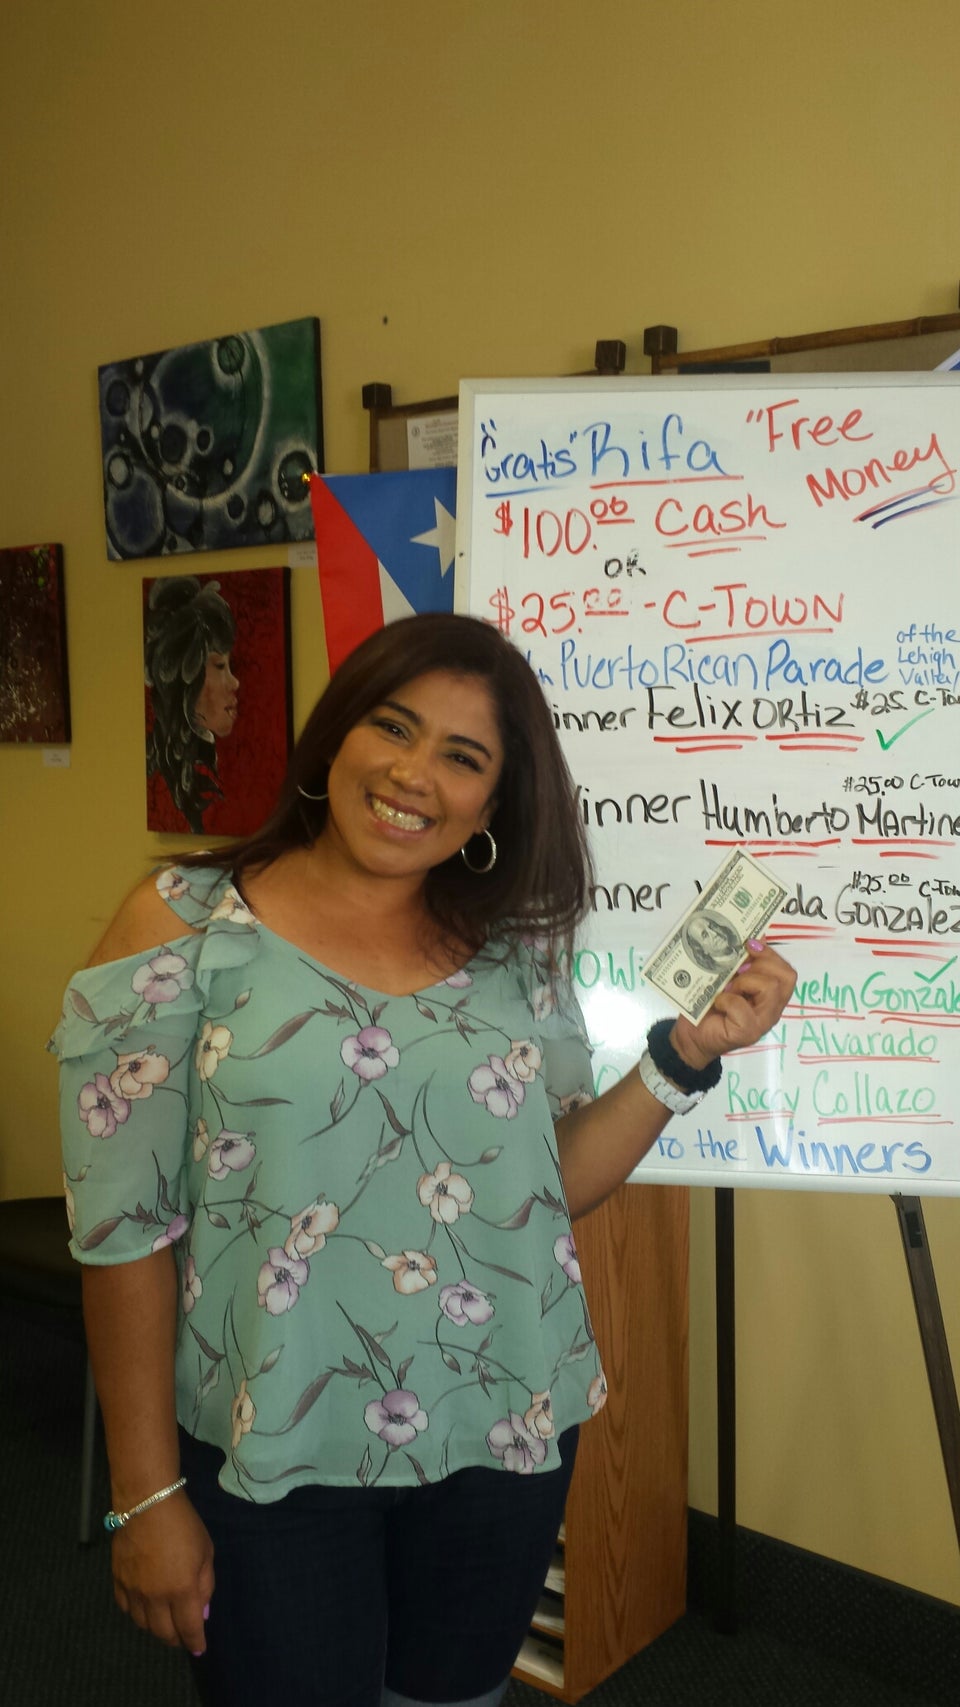 "Gratis" Rifa "Free Money"
$100.00 Cash
OR
$25.00 - C-TOWN
Puerto Rican Parade of the Lehigh Valley
inner Felix ORtiz $25. C-Tow
inner Humberto MArtine $25.00 C-Tow
nner da GONZAlez $25.00 C-Tow
0 Wi velyn Gonzale
y Alvarado
Rocky Collazo
To the Winners
100